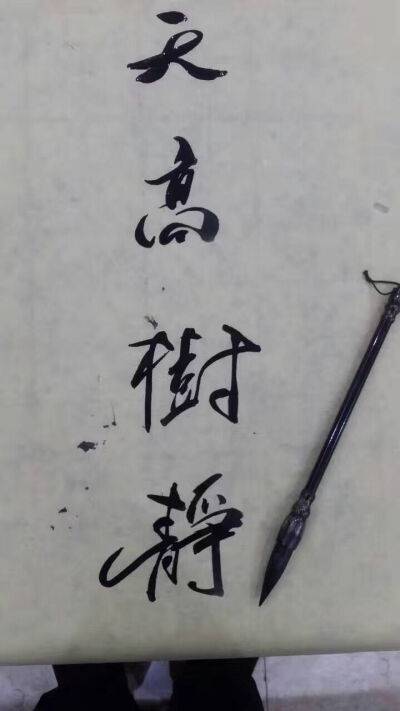 天高樹靜